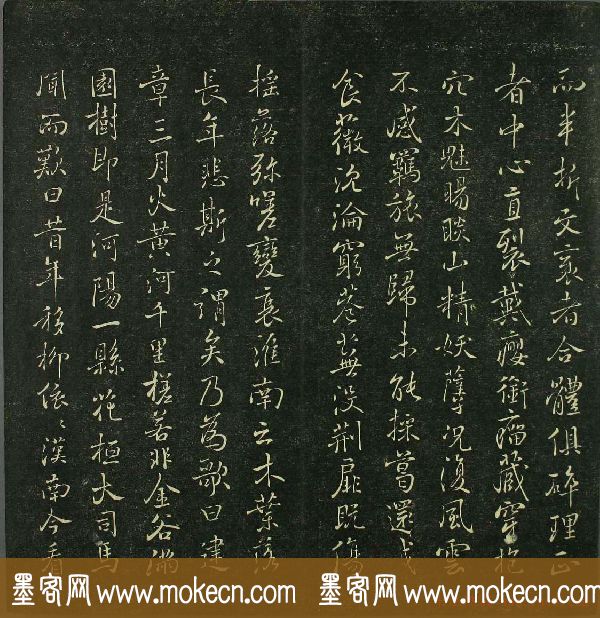 而半折文裹者合體俱碎理正
者中心直裂戴癭銜瘤藏穿抱
穴木魅睗睒山精妖孽况復風雲
不感羈旅無歸未能採葛還成
食薇沉淪窮巷蕪没荆扉既傷
搖落弥嗟變衰淮南云木葉落
長年悲斯之謂矣乃為歌曰建
章三月火黄河千里槎若非金谷滿
園樹即是河陽一縣花桓大司馬
聞而歎曰昔年移柳依〻漢南今看
墨客网 www.mokecn.com 墨客网 www.mokecn.com